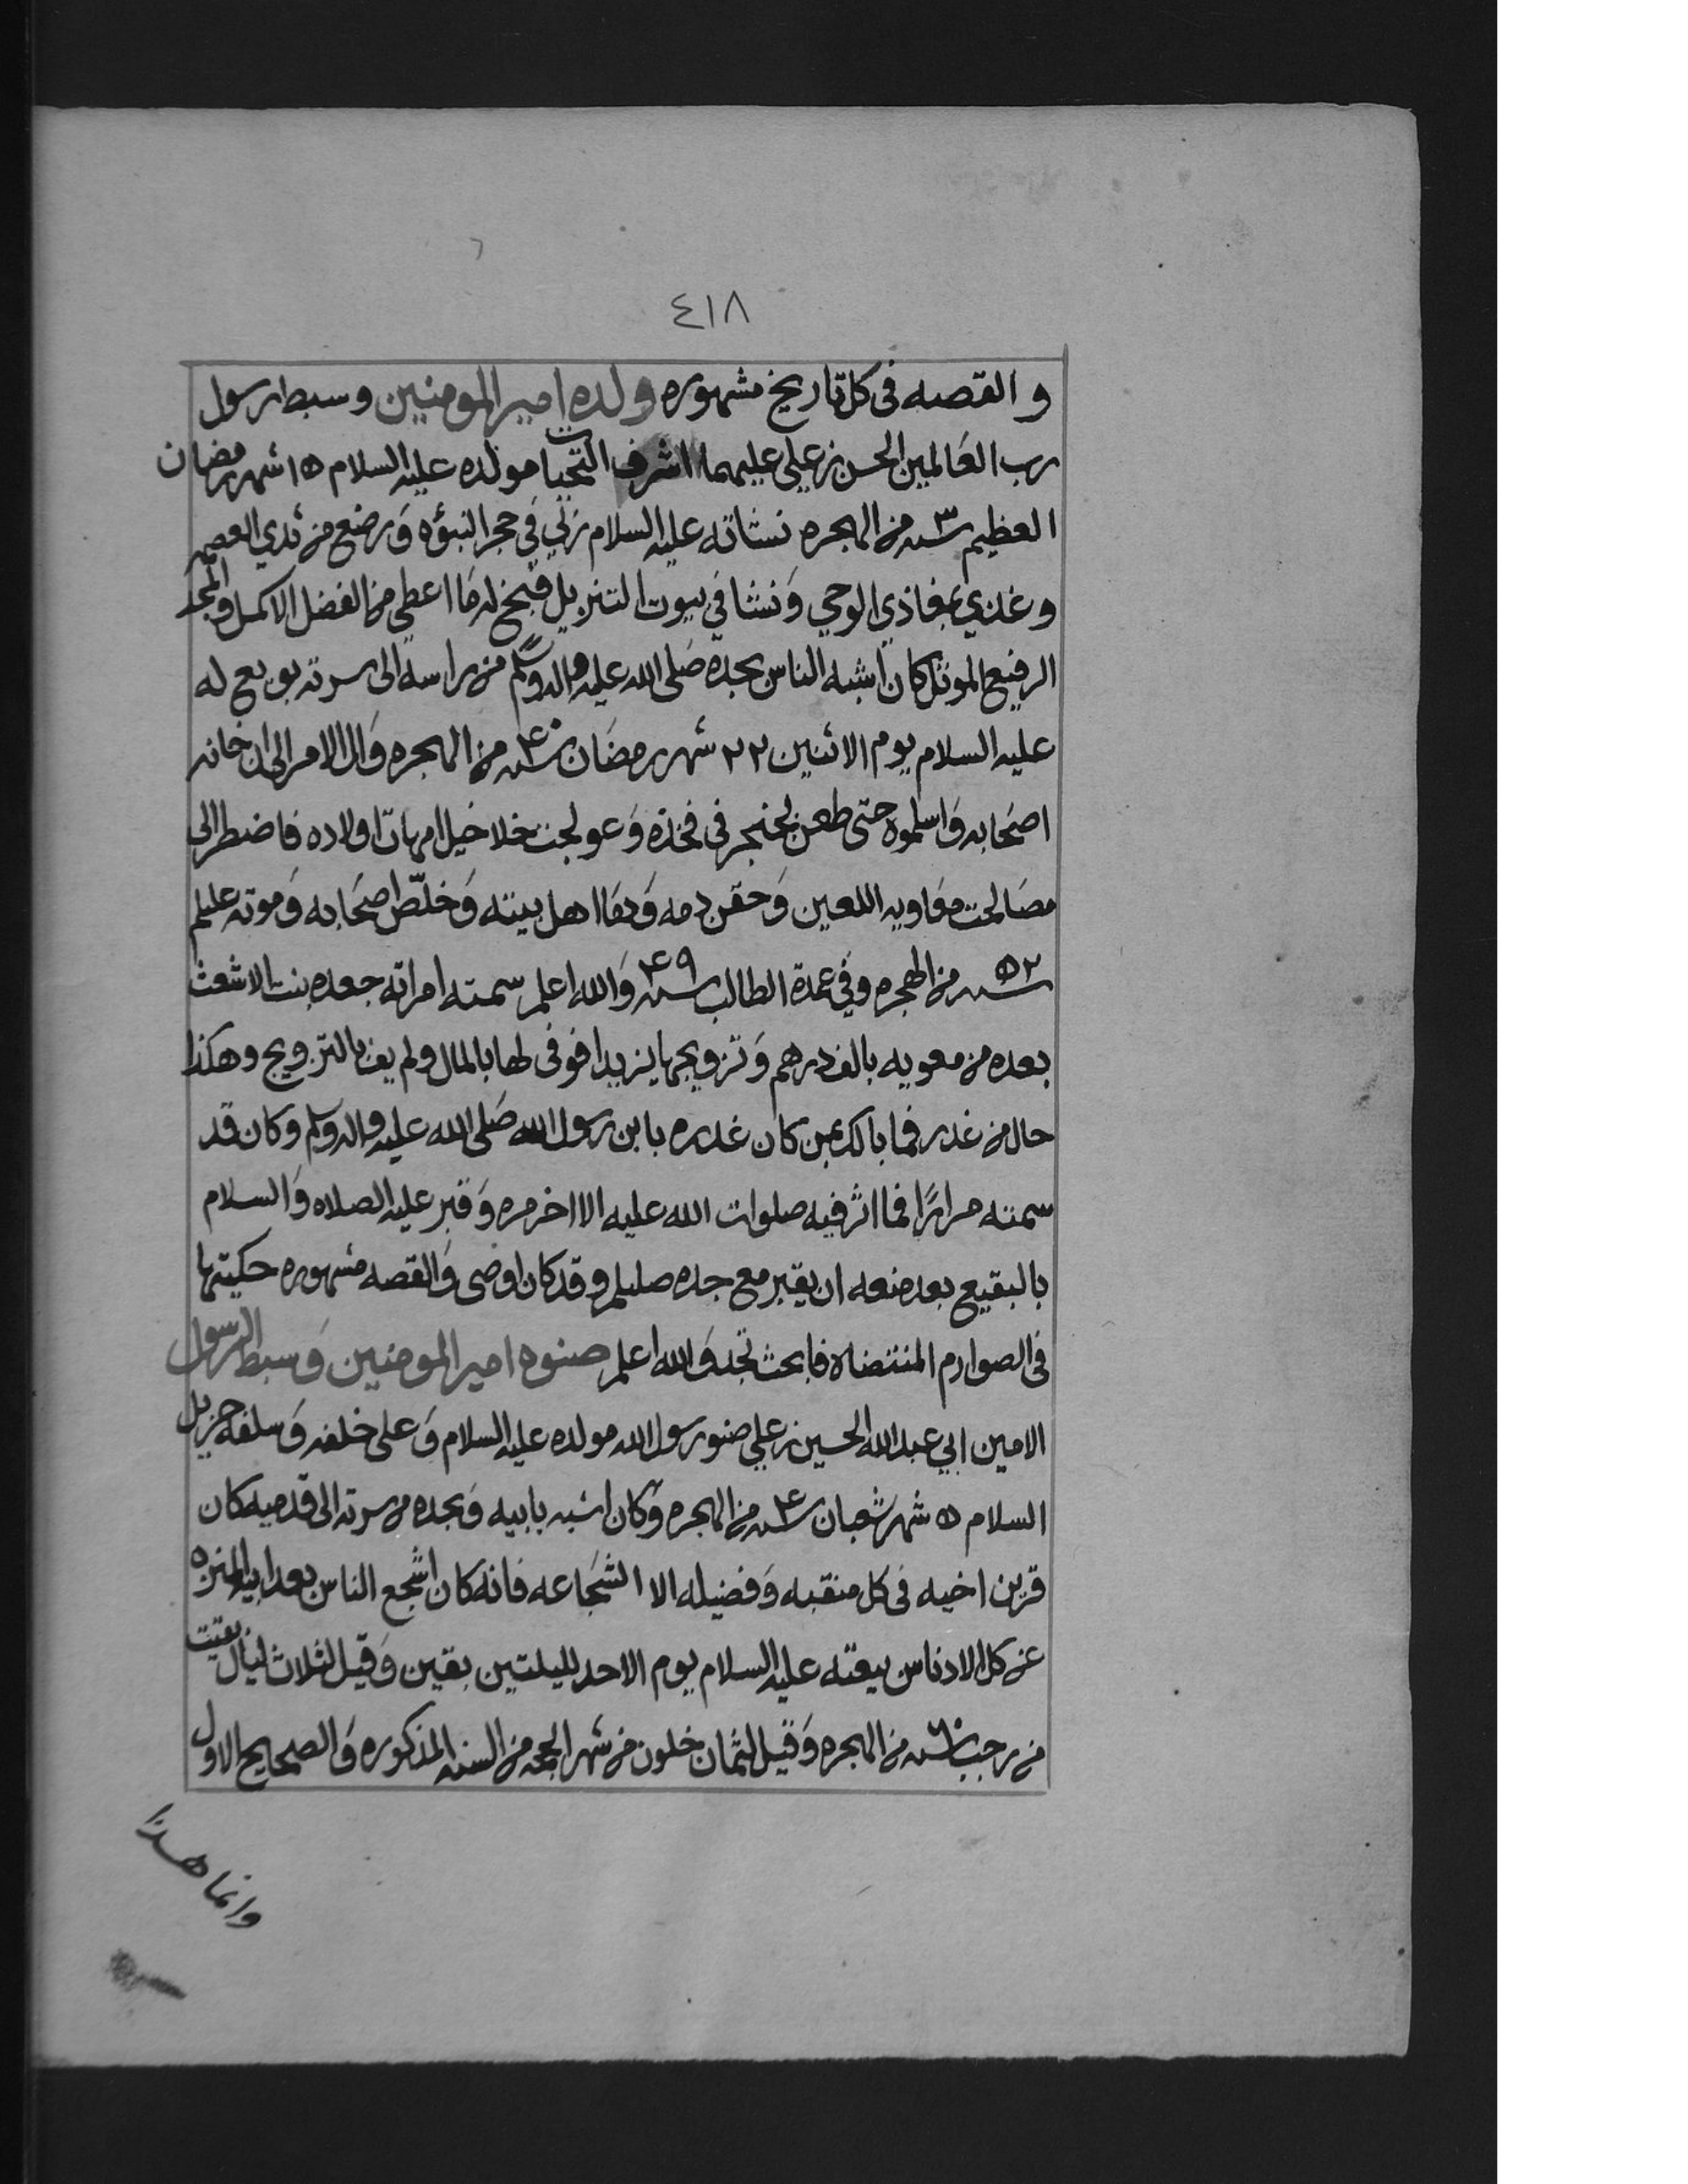 ٤١٨
والقصه في كل تاريخ مشهوره ولده امير المومنين وسبط رسول
رب العالمين الحسن بن علي عليهما اشرف التحيات مولده عليه السلام ١٥ شهر رمضان
العظيم سنه ٣ من الهجره نشاته عليه السلام ربي في حجر النبؤه ورضع من ثدي العصمه
وغذي بمغاذي الوحي ونشا في بيوت التنزيل فبخ بخ له ما اعطي من الفضل الاكمل والمجد
الرفيع الموثل كان اشبه الناس بجده صلى الله عليه واله وسلم من راسه الى سرته بويع له
عليه السلام يوم الاثنين ٢٢ شهر رمضان سنه ٤٠ من الهجره وال الامر الى ان خانه
اصحابه واسلموه حتى طعن بخنجر في فخذه وعولجت خلاخيل امهات اولاده فاضطر الى
مصالحت معاويه اللعين وحقن دمه ودما اهل بيته وخلّص اصحابه وموته عليلم
سنه ٥٢ من الهجره وفي عمدة الطالب سنه ٤٩ والله اعلم سمته امراته جعده بنت الاشعث
بعده من معويه بالف درهم وتزويجها يزيدا فوفى لها بالمال ولم يف بالتزويج وهكذا
حال من غدر فما بالك بمن كان غدره بابن رسول الله صلى الله عليه واله وسلم وكان قد
سمته مرارًا فما اثر فيه صلوات الله عليه الا اخر مره وقبر عليه الصلاه والسلام
بالبقيع بعد منعه ان يقبر مع جده صليلم وقد كان اوصى والقصه مشهوره حكيتها
في الصوارم المنتضاه فابحث تجد والله اعلم صنوه امير المومنين وسبط الرسول
الامين ابي عبد الله الحسين بن علي صنو رسول الله مولده عليه السلام وعلى خلفه وسلفه جزيل
السلام ٥ شهر شعبان سنه ٤ من الهجره وكان اشبه بابيه وبجده من سرته الى قدميه كان
قرين اخيه في كل منقبه وفضيله الا الشجاعه فانه كان اشجع الناس بعد ابيه المنزه
عن كل الادناس بيعته عليه السلام يوم الاحد لليلتين بقين وقيل لثلاث ليال بقيت
من رجب سنه ٦٠ من الهجره وقيل لثمان خلون من شهر الحجه من السنه المذكوره والصحيح الاول
وانما هذا